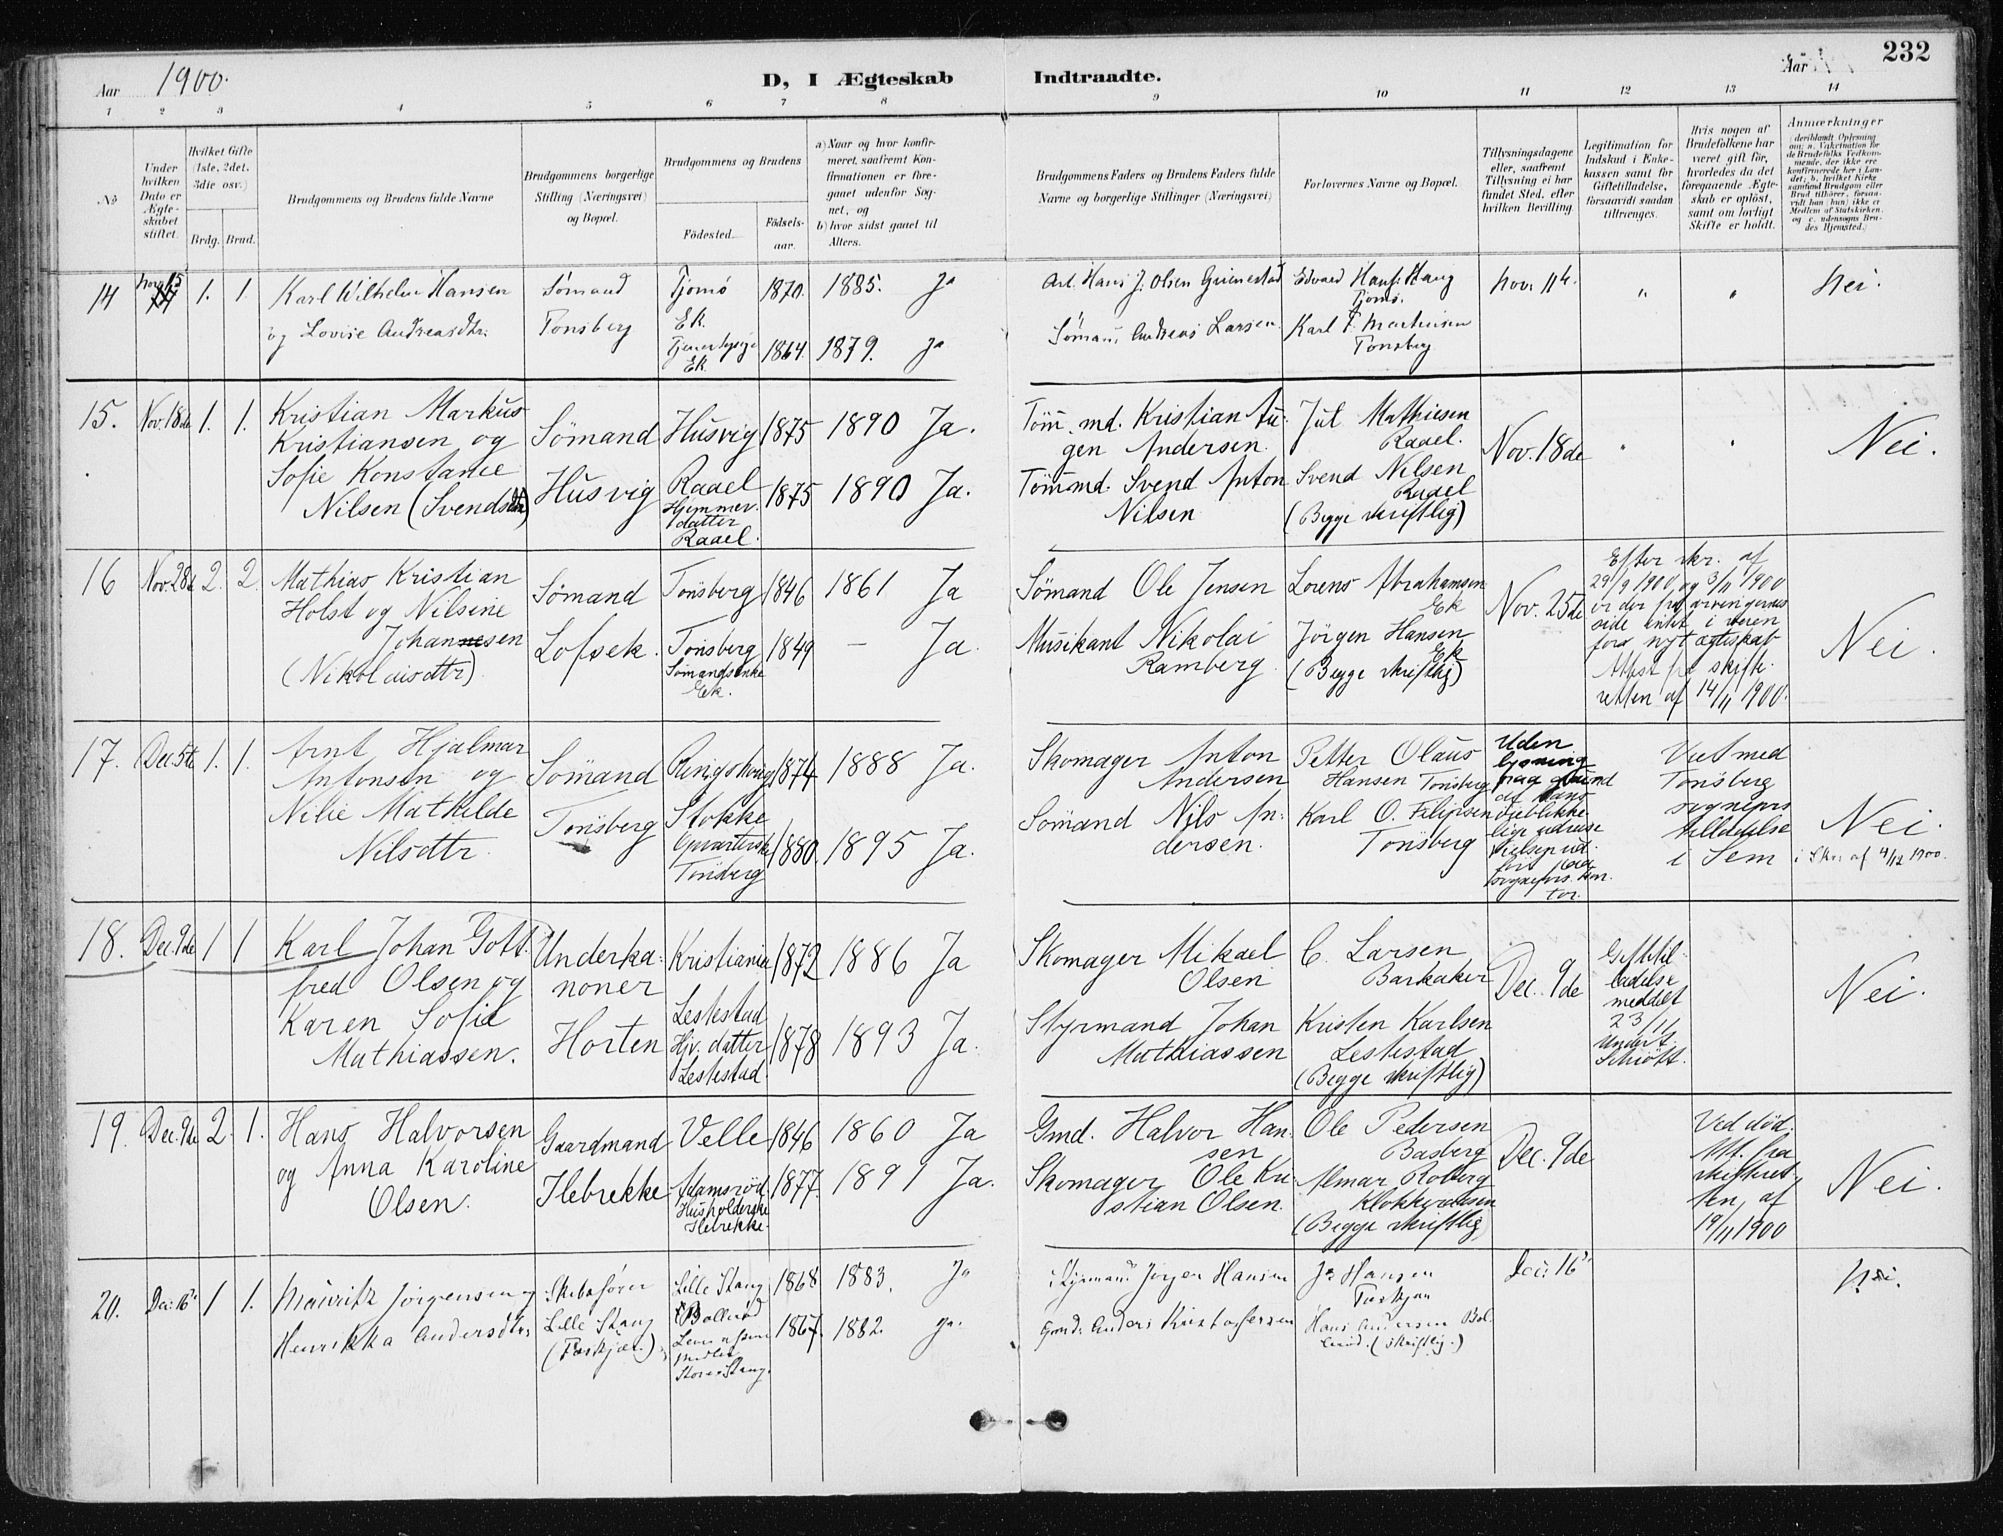 Aar 1900.
D, I Ægteskab Indtraadte.
Aar
232
1 2 3 4 5 6 7 8 9 10 11 12 13 14
No
Under hvilken Dato er Ægteskabet stiftet.
Hvilket Gifte (1ste, 2det, 3die osv.)
Brdg. Brud.
Brudgommens og Brudens fulde Navne
Brudgommens borgerlige Stilling (Næringsvei) og Bopæl.
Brudgommens og Brudens
Födested.
Födsels-aar.
a) Naar og hvor konfirmeret, saafremt Konfirmationen er foregaaet udenfor Sognet, og
b) hvor sidst gaaet til Alters.
Brudgommens Faders og Brudens Faders fulde Navne og borgerlige Stillinger (Næringsvei)
Forlovernes Navne og Bopæl.
Tillysningsdagene eller, saafremt Tillysning ei har fundet Sted, efter hvilken Bevilling.
Legitimation for Indskud i Enkekassen samt for Giftetilladelse, forsaavidt saadan tiltrænges.
Hvis nogen af Brudefolkene har været gift för, hvorledes da det foregaaende Ægteskab er oplöst, samt om lovligt Skifte er holdt.
Anmærkninger
14 1. 1. Karl Wilhelm Hansen Sömand Tjømø 1870. 1885. Ja Arb. Hans J. Olsen Edvard Hans. Stang Nov. 11te " " Nei.
og Lovise Andreasdtr. Tønsberg Ek. Tjömø.
1864. 1879. Ja Sömand Andreas Larsen. Karl F. Tønsberg
Ek.
15. Nov. 18de 1. 1. Kristian Markus Sömand Husvig 1875 1890 Ja. Töm.md. Kristian Au- Jul Mathiesen Nov. 18de " " Nei.
Kristiansen og gen Andersen. Raael.
Sofie Konstanse Husvig Raael 1875 1890 Ja. Tömmd. Svend Anton Svend Nilsen
Nilsen (Svendsdtr) Hjemmev. datter Raael. Nilsen Raael (Begge skriftlig)
16 Nov. 28de 2. 2. Mathias Kristian Sömand Tönsberg 1846 1861 Ja Sömand Ole Jensen Lorens Abrahamsen Ek Nov. 25de Efter skr. af 29/9 1900 og 3/11 1900 er der fra arvingernes side intet i veien for nyt ægteskab Attest fra skifteretten af 14/11 1900. Nei.
Holst og Nilsine
Johannesen Lofsek. Tönsberg 1849 – Ja. Musikant Nikolai Jörgen Hansen Ek
(Nikolaisdtr) Sömandsenke Ek. Ramberg. (Begge skriftlig)
17. Dec. 5te 1. 1. Arnt Hjalmar Sömand Ringshaug 1874 1888 Ja. Skomager Anton Petter Olaus Uden lysning paa grund af hans öieblikkelige udreise Viet med Tonsberg sognepr.s tilladelse i Sem i Skr. af 4/12 1900. Nei.
Antonsen og Andersen Hansen Tonsberg
Nilie Mathilde Tonsberg Stokke 1880. 1895 Ja. Sömand Nils An- Karl O. Filipsen
Nilsdtr. Tönsberg dersen. Tönsberg
18. Dec. 9de 1 1 Karl Johan Gott- Underka- Kristiania 1872 1886 Ja Skomager Mikael C. Larsen Dec. 9de Giftetilladelse meddelt 23/11 undert. Schiött. Nei.
fred Olsen og noner Olsen Barkaker
Karen Sofie Horten Lestestad 1878 1893 Ja. Styrmand Johan Kristen Karlsen
Mathiassen. Hjv. datter Lestestad. Mathiassen Lestestad (Begge skriftlig)
19. Dec. 9de 2. 1. Hans Halvorsen Gaardmand Velle 1846 1860 Ja Gmd. Halvor Han- Ole Pedersen Dec. 9de Ved död. Att. fra skifteretten af 19/11 1900 Nei.
og Anna Karoline sen Basberg
Olsen. Ilebrekke Adamsröd 1877. 1891 Ja. Skomager Ole Kri- Almar Roberg
Husholderske Ilebrekke. stian Olsen. (Begge skriftlig)
20. Dec. 16de 1 1. Mauritz Jørgensen og Skibsfører Lille Stang 1868 1883. Ja Styrmand Jörgen Hansen Js. Hansen Dec. 16de Nei.
Henrikka Andersdtr. Lille Stang 1867. 1882. Ja. Gmd. Anders Kristoffersen Hans Andersen (skriftlig.)
Store Stang.